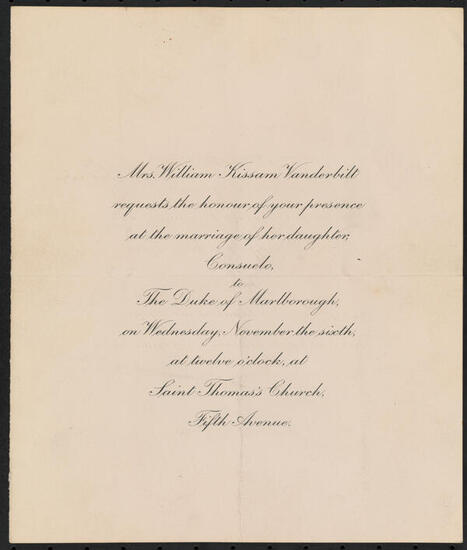 Mrs. William Kissam Vanderbilt
requests the honour of your presence
at the marriage of her daughter,
Consuelo,
to
The Duke of Marlborough,
on Wednesday, November the sixth,
at twelve o'clock, at
Saint Thomas's Church,
Fifth Avenue.